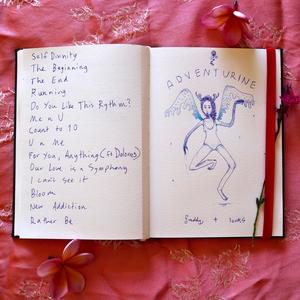 Self Divinity
The Beginning
The End
Running
Do You Like This Rythm?
Me n U
Count to 10
U n Me
For you, Anything (ft Dolores)
Our Love is a Symphony
I can't see it
Bloom
New Addiction
Rather Be
ADVENTURINE
+ looks